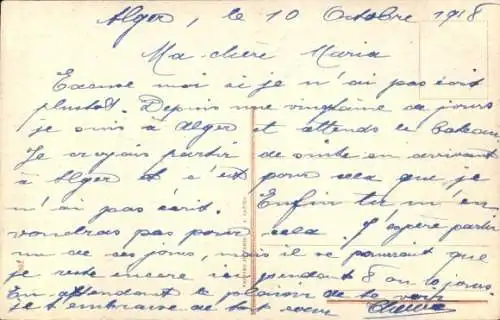 Alger, le 10 Octobre 1918
Ma chère Maria
Excuse moi si je n'ai pas écrit
plustot. Depuis une vingtaine de jours
je suis à Alger et attends le bateau
Je croyais partir de suite en arrivant
à Alger et c'est pour cela que je
n'ai pas écrit. Enfin tu m'en
voudras pas pour cela. J'espère partir
un de ces jours, mais il se pourrait que
je reste encore ici pendant 8 ou 10 jours.
En attendant le plaisir de te voir
je t'embrasse de tout coeur